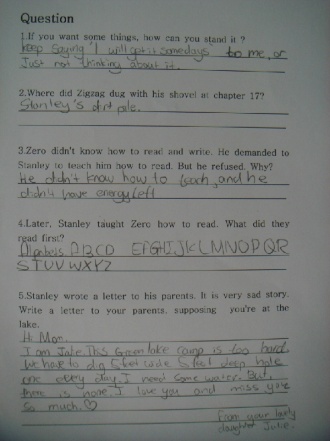 Question
1.If you want some things, how can you stand it ?
keep saying "I will got it somedays to me, or
Just not thinking about it.
2.Where did Zigzag dug with his shovel at chapter 17?
Stanley's dirt pile.
3.Zero didn't know how to read and write. He demanded to
Stanley to teach him how to read. But he refused. Why?
He didn't know how to teach, and he
didn't have energy left
4.Later, Stanley taught Zero how to read. What did they
read first?
Alphabets. ABCD EFGHIJKLMNOPQR
STUVWXYZ
5.Stanley wrote a letter to his parents. It is very sad story.
Write a letter to your parents, supposing you're at the
lake.
Hi Mom.
I am Julie. This Green lake camp is too hard.
We have to dig 5 feet wide 5 feet deep hole
one every day. I need some water. But
there is none. I love you and miss you
so much. ♡
From your lovely
daughter Julie.